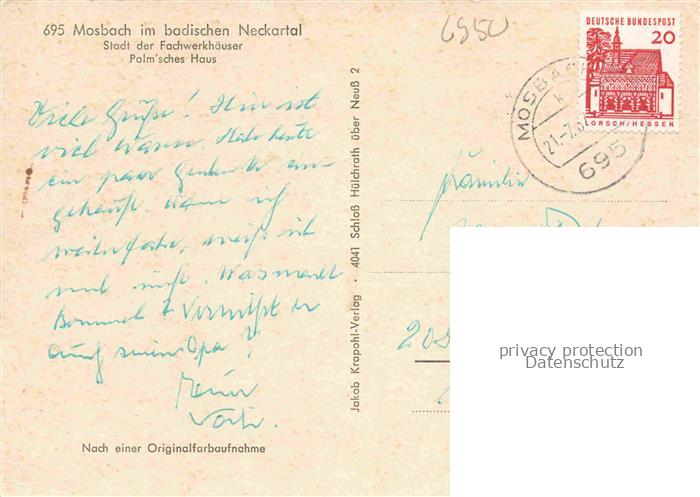 695 Mosbach im badischen Neckartal
Stadt der Fachwerkhäuser
Palm'sches Haus
6950
DEUTSCHE BUNDESPOST
20
LORSCH/HESSEN
MOSBACH
21.-7.67
695
Viele Grüße! Hier ist
viel warm. Habe heute
ein paar Geschenke ein-
gekauft. Wann ich
weiterfahre, weiß ich
noch nicht. Was macht
Bommel? Vermißt er
auch seinen Opa?
Familie
208
Jakob Krapohl-Verlag • 4041 Schloß Hülchrath über Neuß 2
privacy protection
Datenschutz
Nach einer Originalfarbaufnahme